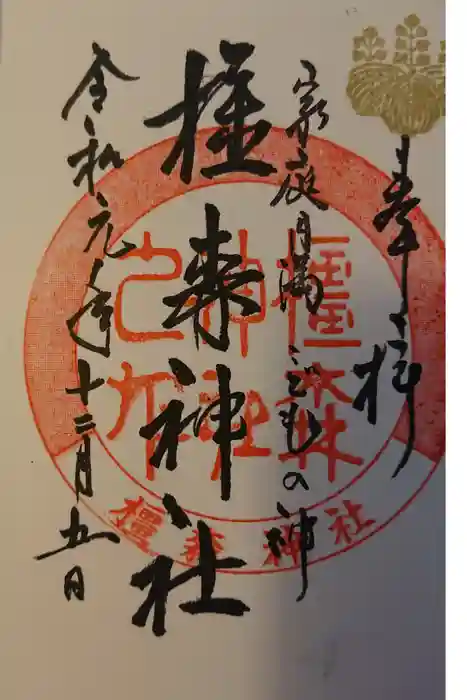 奉拝
家庭円満 こどもの神
橿森神社
令和元年十二月五日
橿森
神社
之印
橿森神社